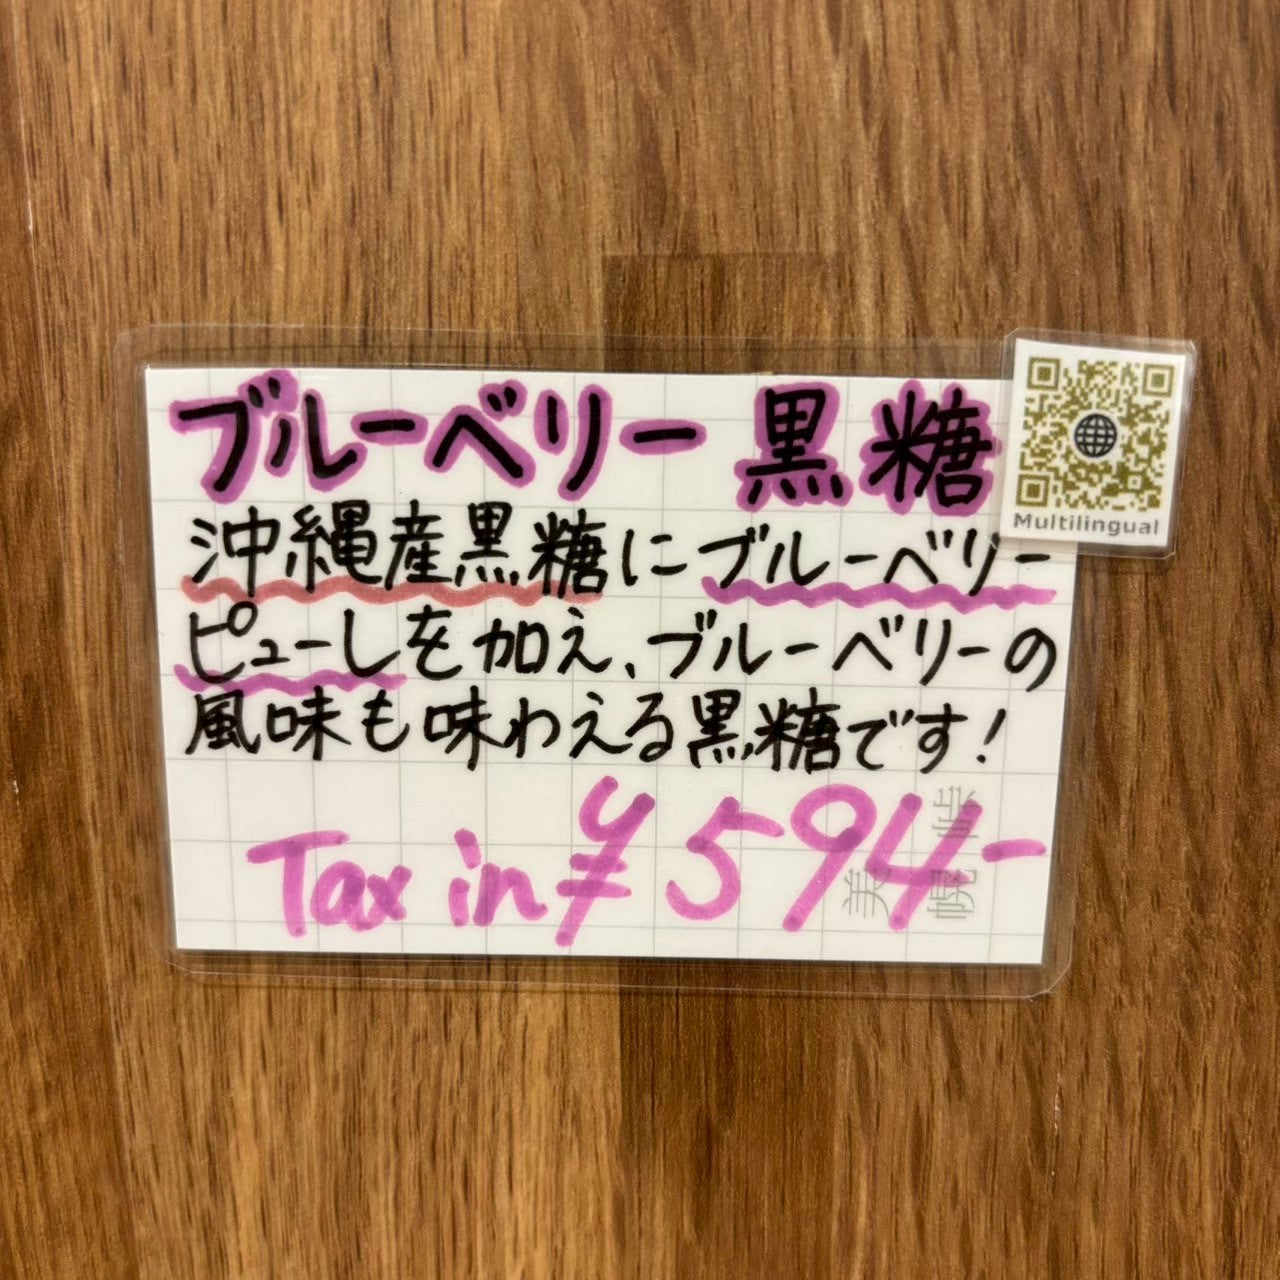 ブルーベリー黒糖
沖縄産黒糖にブルーベリー
ピューレを加え、ブルーベリーの
風味も味わえる黒糖です!
Tax in ¥594-
Multilingual